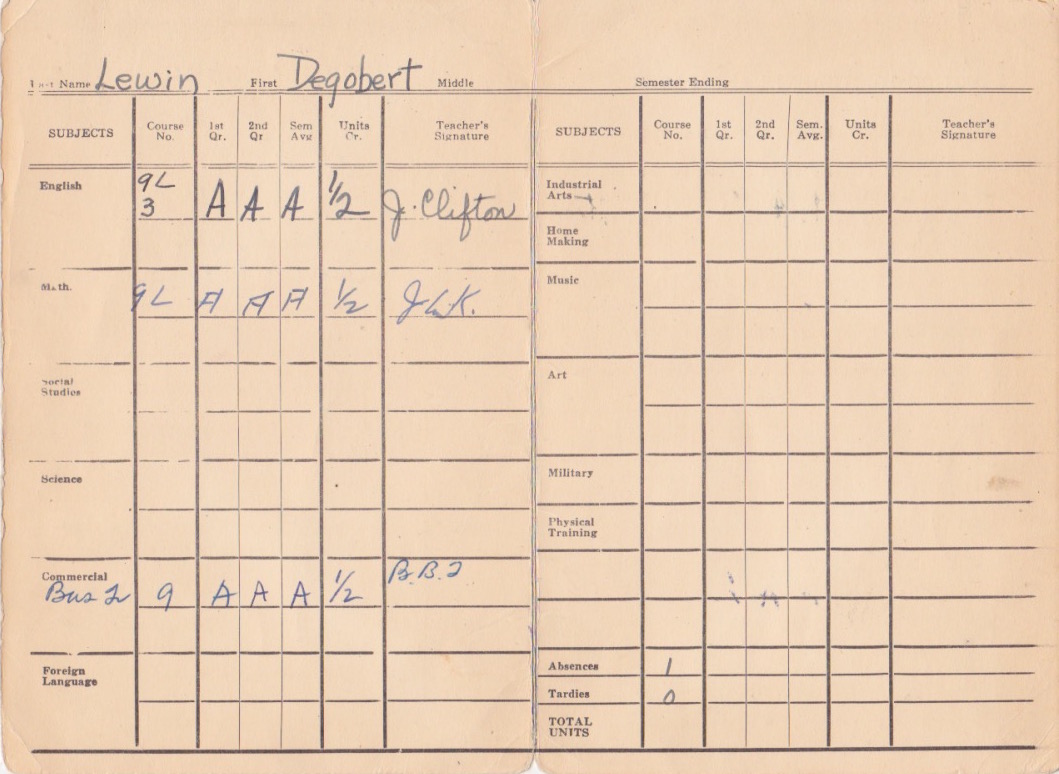 Last Name Lewin First Degobert Middle
SUBJECTS Course No. 1st Qr. 2nd Qr Sem Avg Units Cr. Teacher's Signature
English 9L 3 A A A 1/2 J. Clifton
Math. 9L A A A 1/2
Social Studies
Science
Commercial Bus 9 A A A 1/2
Foreign Language
Semester Ending
SUBJECTS Course No. 1st Qr. 2nd Qr. Sem. Avg. Units Cr. Teacher's Signature
Industrial Arts
Home Making
Music
Art
Military
Physical Training
Absences 1
Tardies 0
TOTAL UNITS